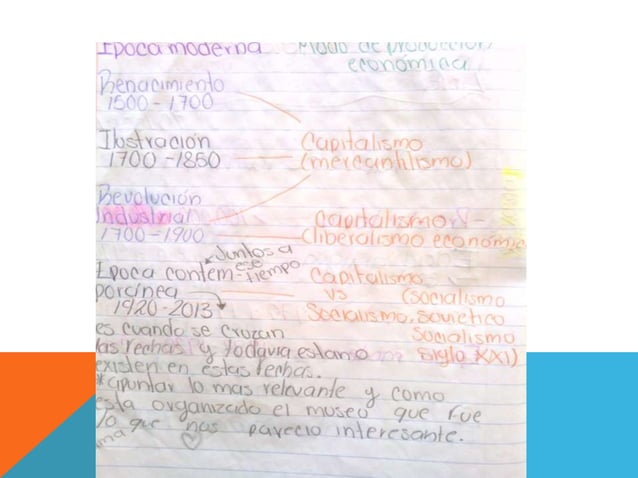 Epoca moderna Modo de producción
económica
Renacimiento
1500-1700
Ilustración Capitalismo
1700-1850 (mercantilismo)
Revolución
Industrial Capitalismo
1700-1900 (liberalismo económic
Juntos a
ese
Epoca contem- tiempo Capitalismo
porcínea vs (socialismo
1920-2013 Socialismo. sovietico
es cuando se cruzan Socialismo
las fechas y todavia estan o siglo XXI)
existen en estas fechas.
*apuntar lo mas relevante y como
esta organizado el museo que fue
lo que nos parecio interesante.